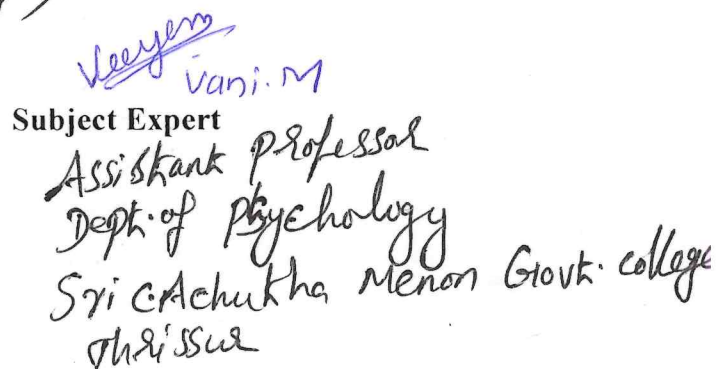 Vani.M
Subject Expert
Assistant Professor
Dept. of Psychology
Sri C Achutha Menon Govt. college
Thrissur